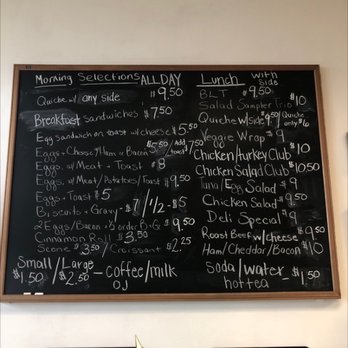 Morning Selections ALL DAY
Quiche w/ any side $9.50
Breakfast sandwiches $7.50
Egg sandwich on toast w/ cheese $5.50
Eggs + Cheese/Ham or Bacon $5.50 Add toast $7.50
Eggs w/ Meat + Toast $8
Eggs w/ Meat/Potatoes/Toast $9.50
Eggs + Toast $5
Biscuits + Gravy 1/2 - $5
2 Eggs/Bacon + 1/2 order B+G $9.50
Cinnamon Roll $3.50
Scone $3.50/Croissant $2.25
Small/Large - coffee/milk
$1.50 $2.50 OJ
Lunch with side
BLT $9.50
Salad Sampler Trio $10
Quiche w/ side $9.50/Quiche only $6
Veggie Wrap $9
Chicken/turkey Club $10
Chicken Salad Club $10.50
Tuna/Egg Salad $9
Chicken Salad $9.50
Deli Special $9
Roast Beef w/ cheese $9.50
Ham/Cheddar/Bacon $10
Soda/water - $1.50
hot tea